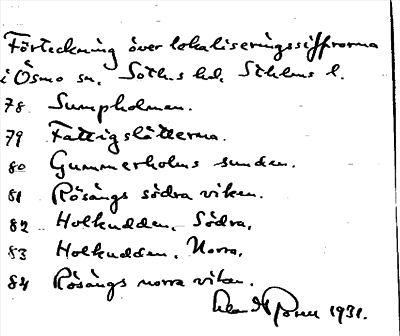 Förteckning över lokaliseringssiffrorna
i Ösmo sn. Sotlms hd. Sthlms l.
78 Sumpholmen.
79 Fattigslätterna.
80 Gummerholms sunden.
81 Rösängs södra viken.
82 Holkudden, Södra,
83 Holkudden, Norra,
84 Rösängs norra viken.
1931.